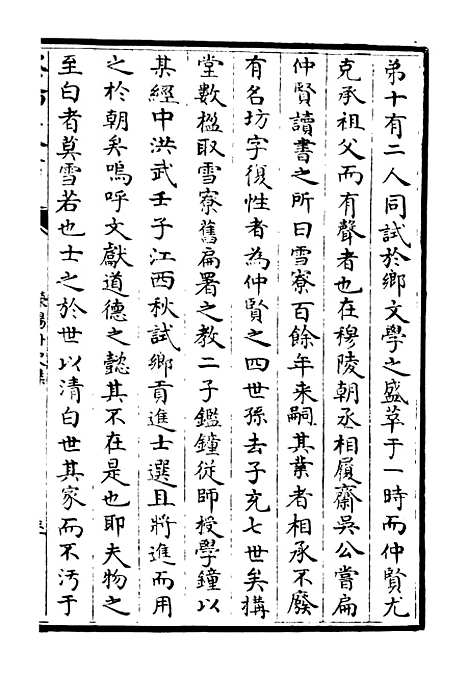 弟十有二人同試於鄉文學之盛萃于一時而仲賢尤
克承祖父而有聲者也在穆陵朝丞相履齋吳公嘗扁
仲賢讀書之所曰雪寮百餘年来嗣其業者相承不廢
有名坊字復性者為仲賢之四世孫去子充七世矣構
堂數楹取雪寮舊扁署之教二子鑑鐘從師授學鐘以
其經中洪武壬子江西秋試鄉貢進士選且將進而用
之於朝矣嗚呼文獻道德之懿其不在是也耶夫物之
至白者莫雪若也士之於世以清白世其家而不汚于